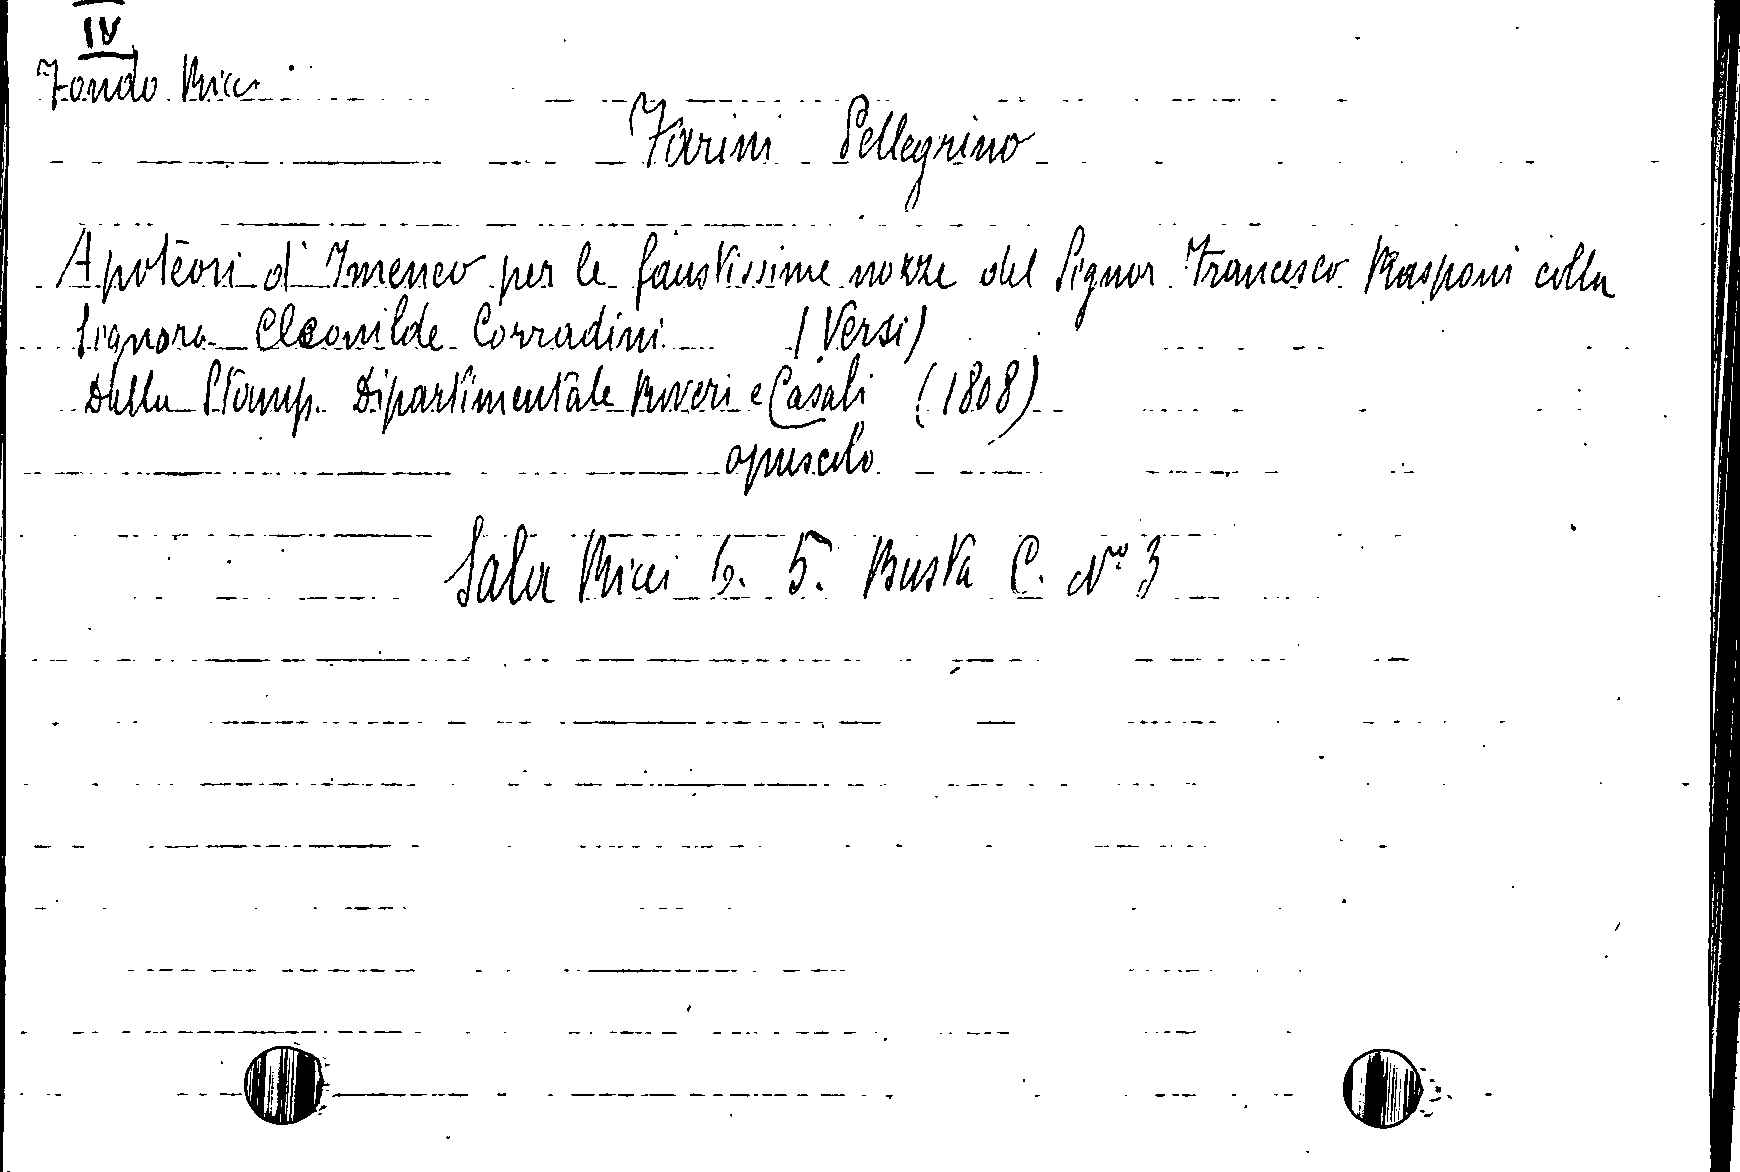 IV
Fondo Ricci
Farini Pellegrino
Apoteosi d'Imeneo per le faustissime nozze del Signor Francesco Rasponi colla
Signora Cleonilde Corradini (Versi)
Dalla Stamp. Dipartimentale Roveri e Casali (1808)
opuscolo
Sala Ricci b. 5. Busta C. N° 3